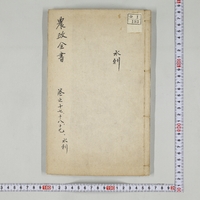 水利
農政全書
巻之十七十八十九 水利